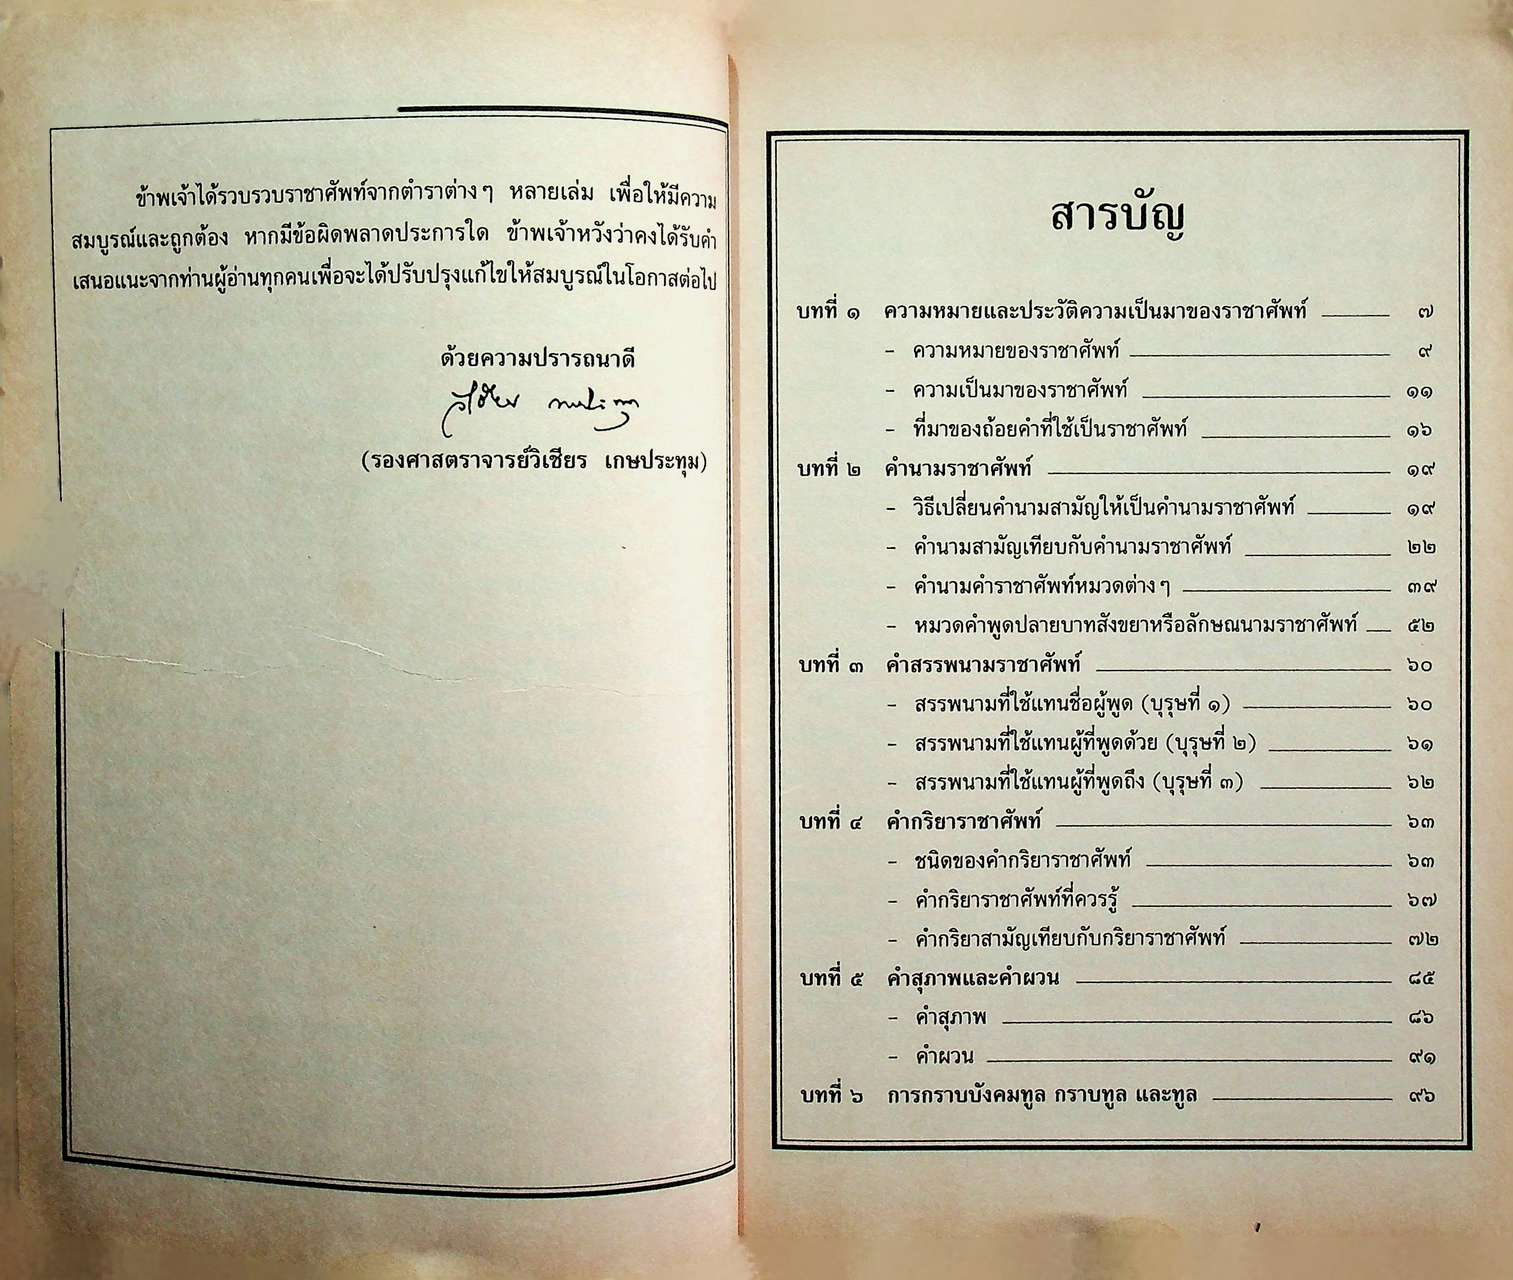 ข้าพเจ้าได้รวบรวมราชาศัพท์จากตำราต่าง ๆ หลายเล่ม เพื่อให้มีความ
สมบูรณ์และถูกต้อง หากมีข้อผิดพลาดประการใด ข้าพเจ้าหวังว่าคงได้รับคำ
เสนอแนะจากท่านผู้อ่านทุกคนเพื่อจะได้ปรับปรุงแก้ไขให้สมบูรณ์ในโอกาสต่อไป
ด้วยความปรารถนาดี
(รองศาสตราจารย์วิเชียร เกษประทุม)
สารบัญ
บทที่ ๑ ความหมายและประวัติความเป็นมาของราชาศัพท์ ๗
- ความหมายของราชาศัพท์ ๙
- ความเป็นมาของราชาศัพท์ ๑๑
- ที่มาของถ้อยคำที่ใช้เป็นราชาศัพท์ ๑๖
บทที่ ๒ คำนามราชาศัพท์ ๑๙
- วิธีเปลี่ยนคำนามสามัญให้เป็นคำนามราชาศัพท์ ๑๙
- คำนามสามัญเทียบกับคำนามราชาศัพท์ ๒๒
- คำนามคำราชาศัพท์หมวดต่าง ๆ ๓๙
- หมวดคำพูดปลายบาทสังขยาหรือลักษณนามราชาศัพท์ ๕๒
บทที่ ๓ คำสรรพนามราชาศัพท์ ๖๐
- สรรพนามที่ใช้แทนชื่อผู้พูด (บุรุษที่ ๑) ๖๐
- สรรพนามที่ใช้แทนผู้ที่พูดด้วย (บุรุษที่ ๒) ๖๑
- สรรพนามที่ใช้แทนผู้ที่พูดถึง (บุรุษที่ ๓) ๖๒
บทที่ ๔ คำกริยาราชาศัพท์ ๖๓
- ชนิดของคำกริยาราชาศัพท์ ๖๓
- คำกริยาราชาศัพท์ที่ควรรู้ ๖๗
- คำกริยาสามัญเทียบกับกริยาราชาศัพท์ ๗๒
บทที่ ๕ คำสุภาพและคำผวน ๘๕
- คำสุภาพ ๘๖
- คำผวน ๙๑
บทที่ ๖ การกราบบังคมทูล กราบทูล และทูล ๙๖